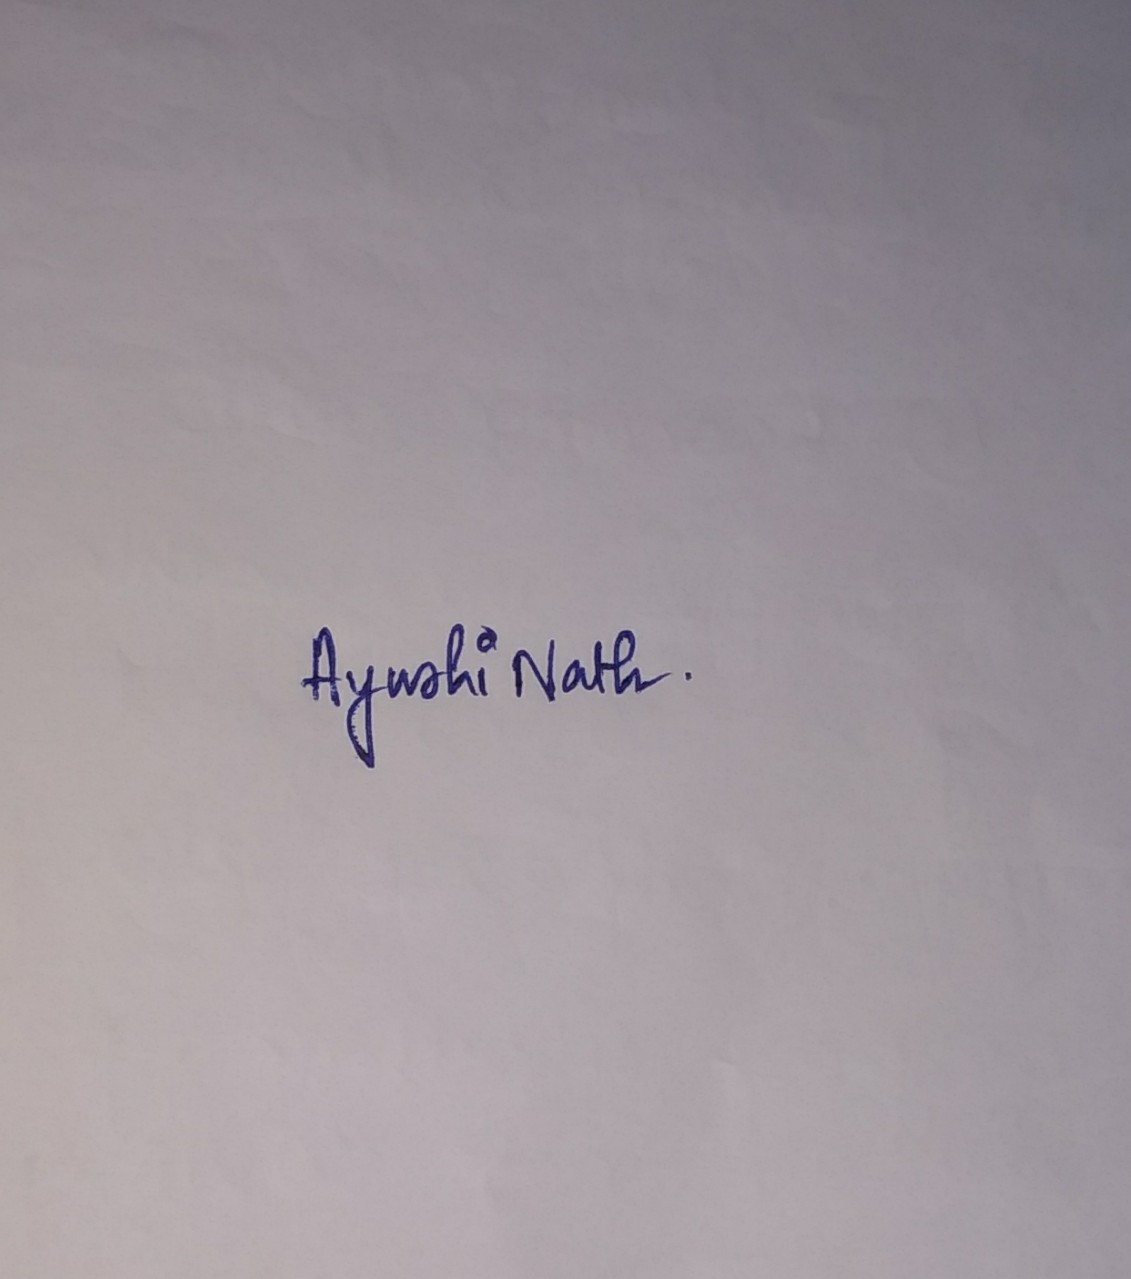 Ayushi Nath.